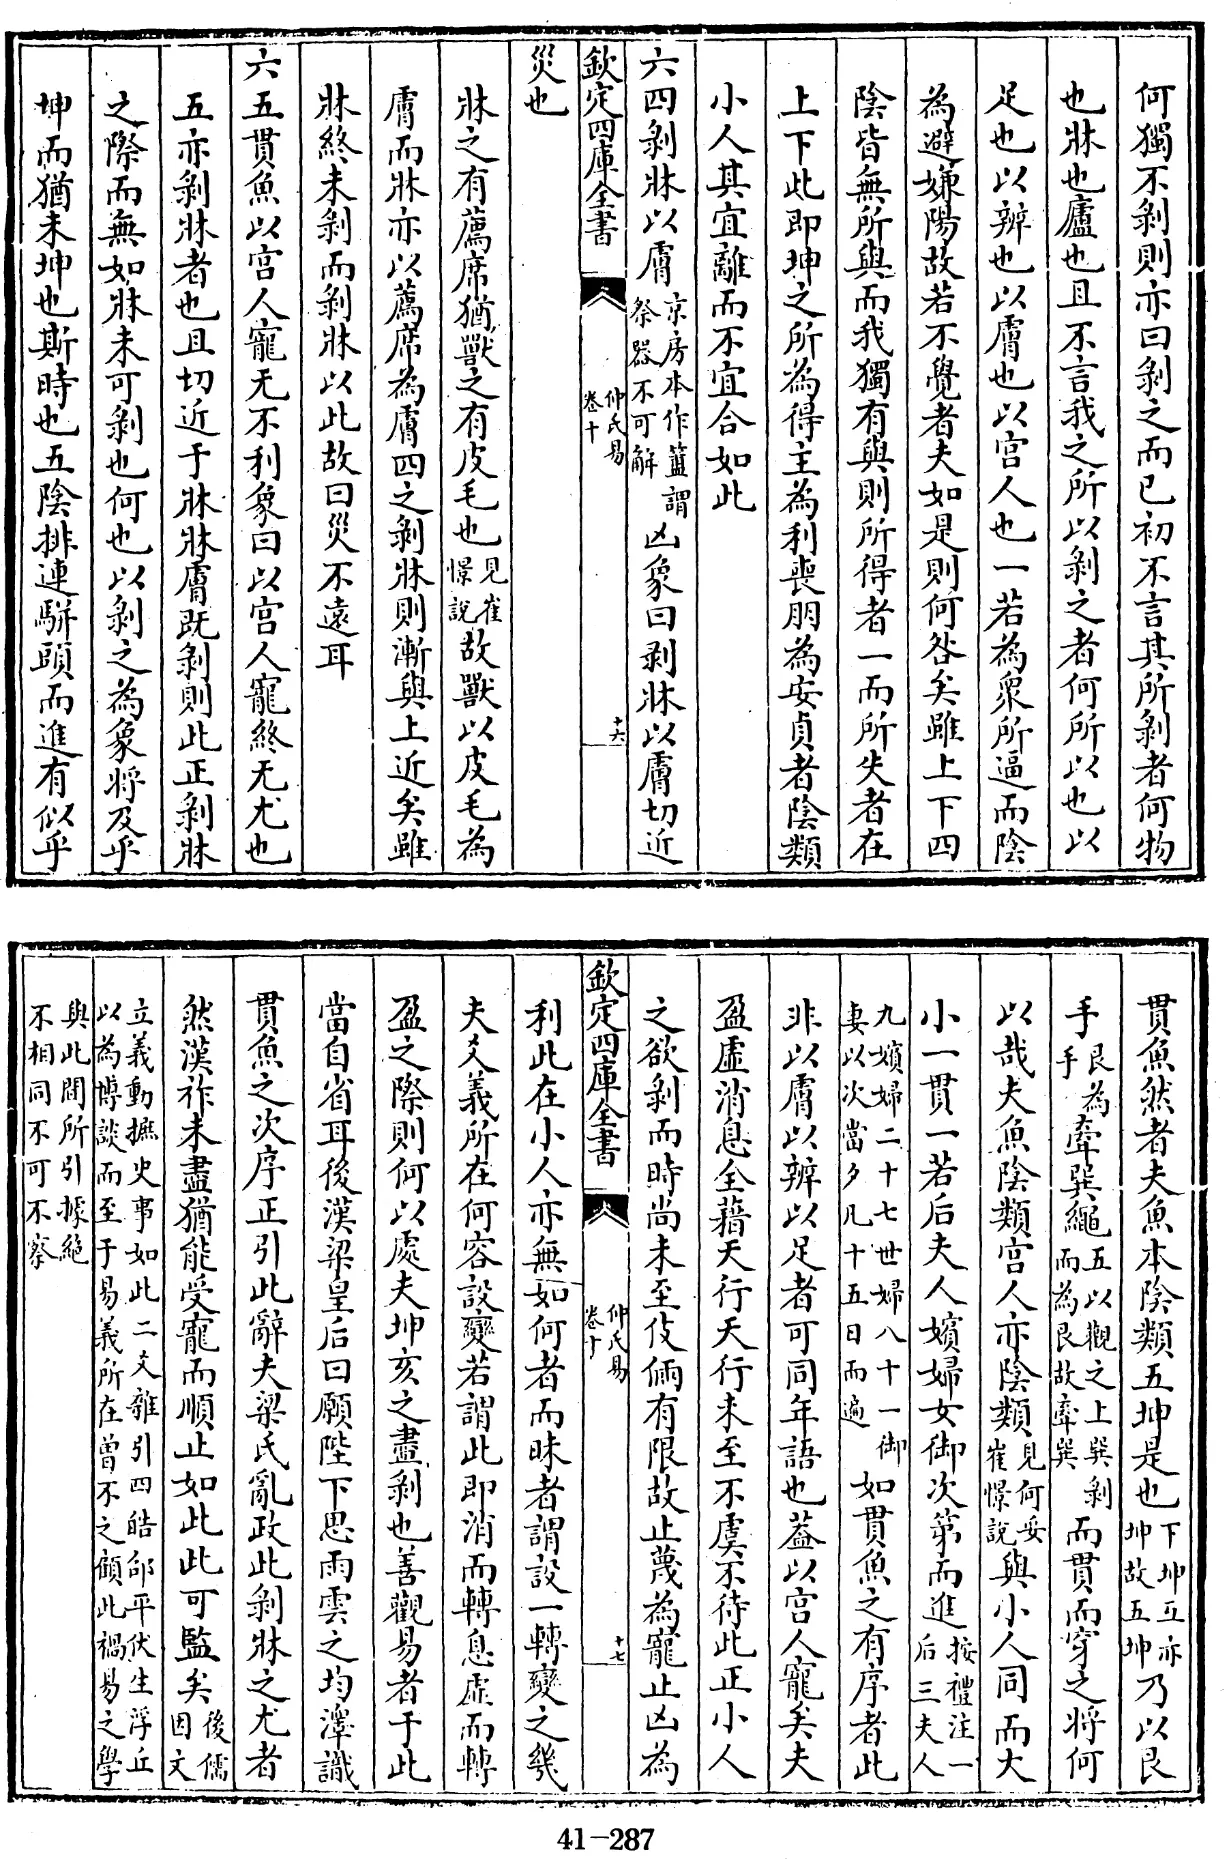 何獨不剝則亦曰剝之而已初不言其所剝者何物
也牀也廬也且不言我之所以剝之者何所以也以
足也以辨也以膚也以宫人也一若為衆所逼而陰
為避嫌陽故若不覺者夫如是則何咎矣雖上下四
陰皆無所與而我獨有與則所得者一而所失者在
上下此即坤之所為得主為利喪朋為安貞者陰類
小人其宜離而不宜合如此
六四剝牀以膚京房本作簠謂祭器不可解凶象曰剥牀以膚切近
欽定四庫全書 仲氏易 卷十 十六
災也
牀之有薦席猶獸之有皮毛也見崔憬説故獸以皮毛為
膚而牀亦以薦席為膚四之剥牀則漸與上近矣雖
牀終未剝而剝牀以此故曰災不遠耳
六五貫魚以宫人寵无不利象曰以宫人寵終无尤也
五亦剝牀者也且切近于牀牀膚既剝則此正剝牀
之際而無如牀未可剝也何也以剝之為象將及乎
坤而猶未坤也斯時也五陰排連駢頭而進有似乎
貫魚然者夫魚本陰類五坤是也下坤互亦坤故五坤乃以艮
手艮為手牽巽繩五以觀之上巽剥而為艮故牽巽而貫而穿之將何
以哉夫魚陰類宫人亦陰類見何妥崔憬説與小人同而大
小一貫一若后夫人嬪婦女御次第而進按禮注一后三夫人
九嬪婦二十七世婦八十一御妻以次當夕凡十五日而遍如貫魚之有序者此
非以膚以辨以足者可同年語也葢以宫人寵矣夫
盈虛消息全藉天行天行未至不虞不待此正小人
之欲剝而時尚未至伎倆有限故止蔑為寵止凶為
欽定四庫全書 仲氏易 卷十 十七
利此在小人亦無如何者而昧者謂設一轉變之幾
夫爻義所在何容設變若謂此即消而轉息虛而轉
盈之際則何以處夫坤亥之盡剝也善觀易者于此
當自省耳後漢梁皇后曰願陛下思雨雲之均澤識
貫魚之次序正引此辭夫梁氏亂政此剝牀之尤者
然漢祚未盡猶能受寵而順止如此此可監矣後儒因文
立義動摭史事如此二爻雜引四皓邴平伏生浮丘
以為博談而至于易義所在曾不之顧此禍易之學
與此間所引據絶
不相同不可不察
41-287